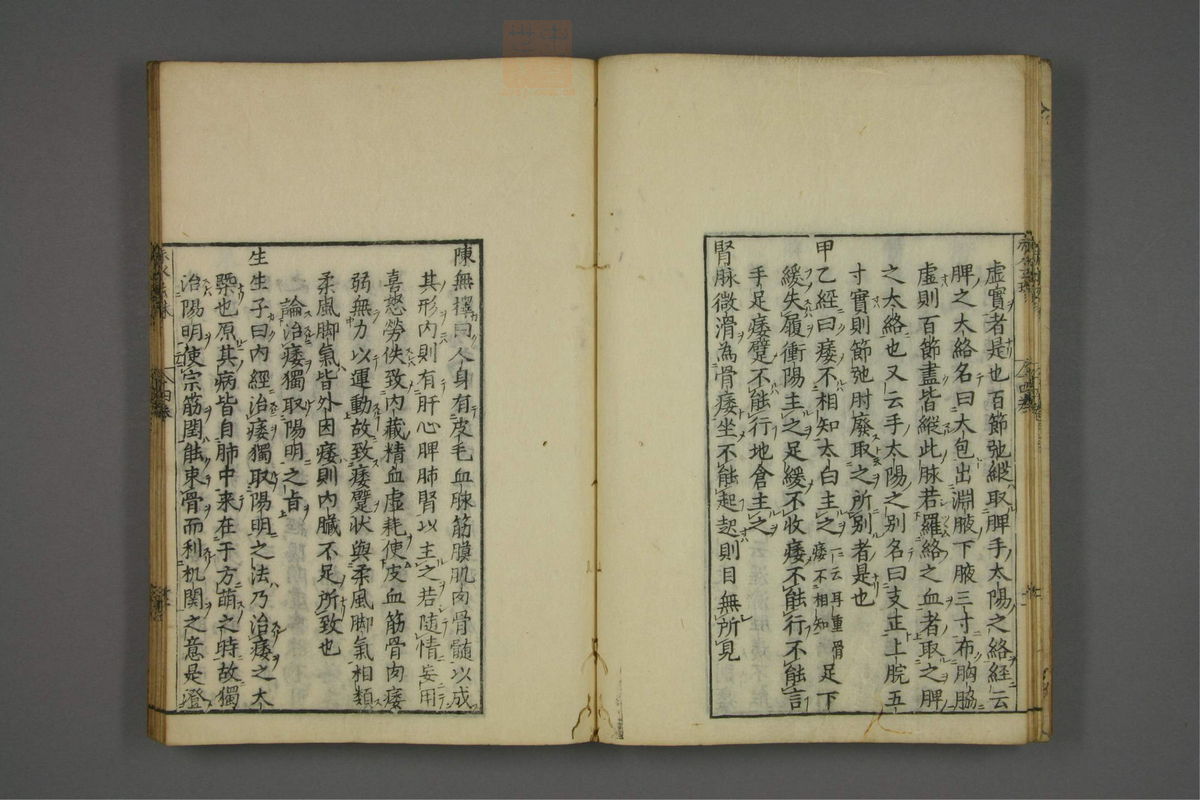 虛實者是也百節弛縱取脾手太陽之絡經云
脾之大絡名曰大包出淵腋下腋三寸布胸脇
虛則百節盡皆縱此脉若羅絡之血者取之脾
之大絡也又云手太陽之别名曰支正上腕五
寸實則節弛肘廢取之所别者是也
甲乙經曰痿不相知太白主之一云耳重屑足下
痿不相知
緩失履衝陽主之足緩不收痿不能行不能言
手足痿躄不能行地倉主之
腎脉微滑為骨痿坐不能起起則目無所見
陳無擇曰人身有皮毛血脉筋膜肌肉骨髓以成
其形內則有肝心脾肺腎以主之若隨情妄用
喜怒勞佚致內藏精血虛耗使皮血筋骨肉痿
弱無力以運動故致痿躄状與柔風脚氣相類
柔風脚氣皆外因痿則內臟不足所致也
論治痿獨取陽明之旨
生生子曰內經治痿獨取陽明之法乃治痿之太
槩也原其病皆自肺中来在于方萌之時故獨
治陽明使宗筋潤能束骨而利机関之意是澄